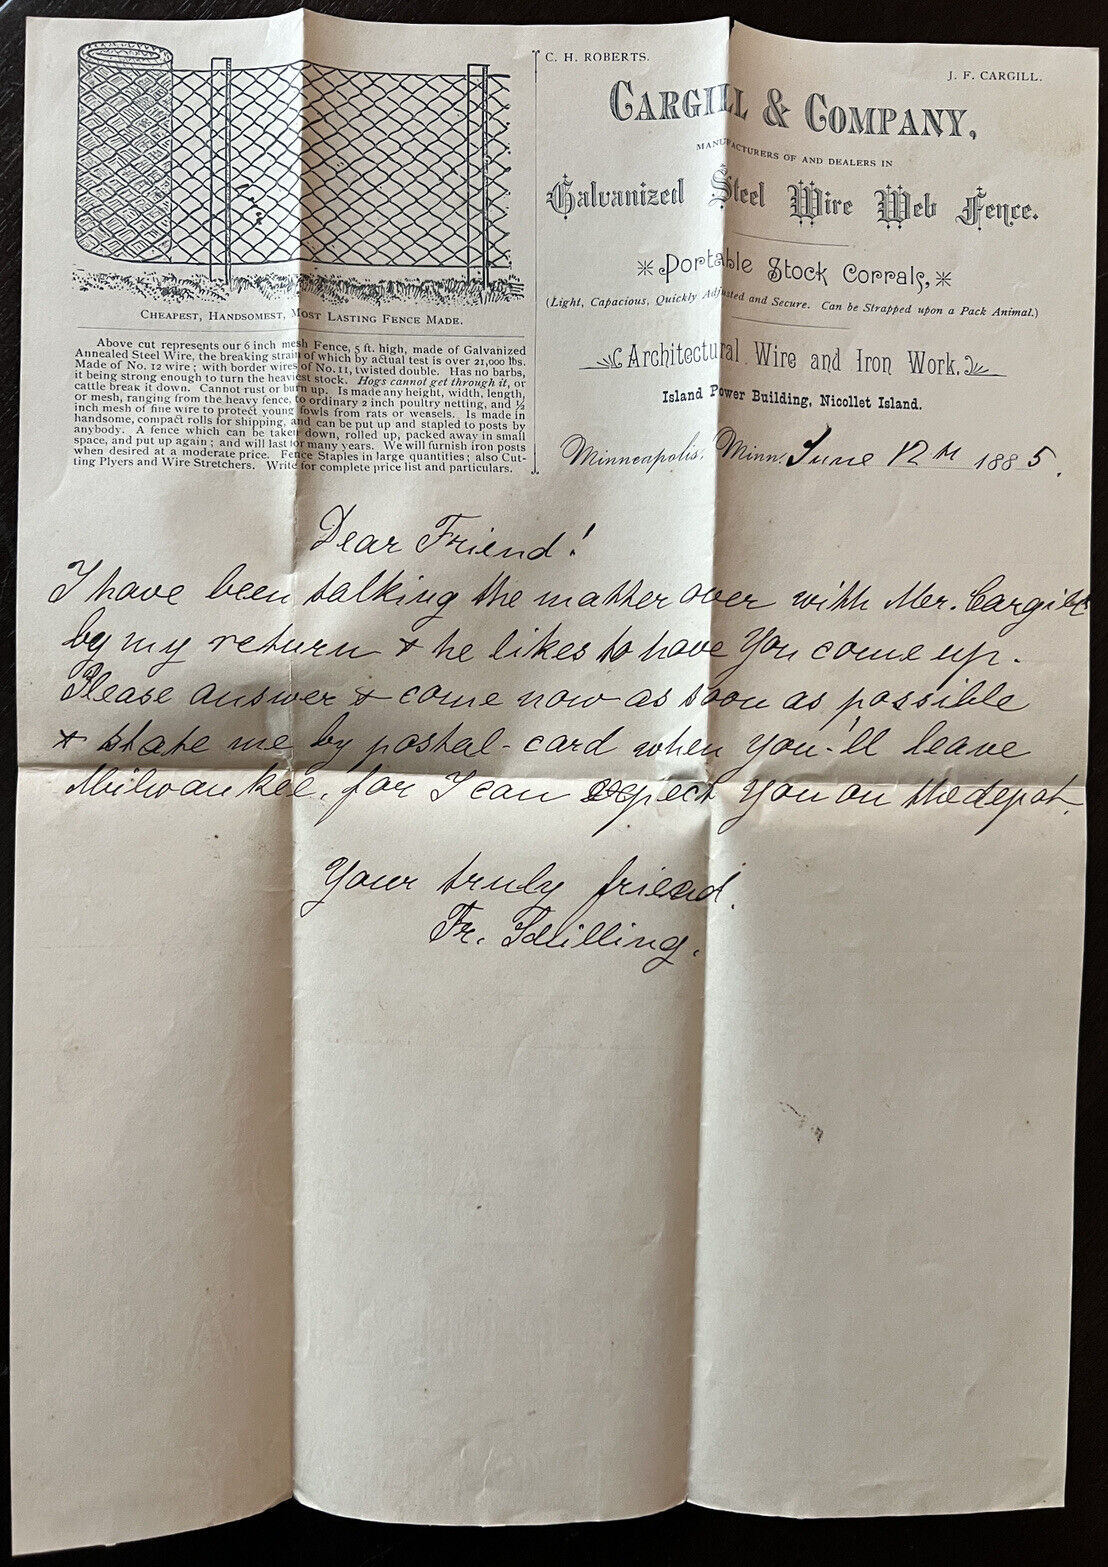 C. H. ROBERTS.
J. F. CARGILL.
CARGILL & COMPANY,
MANUFACTURERS OF AND DEALERS IN
Galvanized Steel Wire Web Fence.
Portable Stock Corrals,
(Light, Capacious, Quickly Adjusted and Secure. Can be Strapped upon a Pack Animal.)
Architectural Wire and Iron Work.
Island Power Building, Nicollet Island.
CHEAPEST, HANDSOMEST, MOST LASTING FENCE MADE.
Above cut represents our 6 inch mesh Fence, 5 ft. high, made of Galvanized
Annealed Steel Wire, the breaking strain of which by actual test is over 21,000 lbs.
Made of No. 12 wire; with border wires of No. 11, twisted double. Has no barbs,
it being strong enough to turn the heaviest stock. Hogs cannot get through it, or
cattle break it down. Cannot rust or burn up. Is made any height, width, length,
or mesh, ranging from the heavy fence, to ordinary 2 inch poultry netting, and ½
inch mesh of fine wire to protect young fowls from rats or weasels. Is made in
handsome, compact rolls for shipping, and can be put up and stapled to posts by
anybody. A fence which can be taken down, rolled up, packed away in small
space, and put up again; and will last for many years. We will furnish iron posts
when desired at a moderate price. Fence Staples in large quantities; also Cut-
ting Plyers and Wire Stretchers. Write for complete price list and particulars.
Minneapolis, Minn. June 12th 1885.
Dear Friend!
I have been talking the matter over with Mr. Cargill
by my return & he likes to have You come up.
Please answer & come now as soon as possible
& state me by postal-card when you'll leave
Milwaukee, for I can expect you on the depot.
Your truly friend.
Fr.